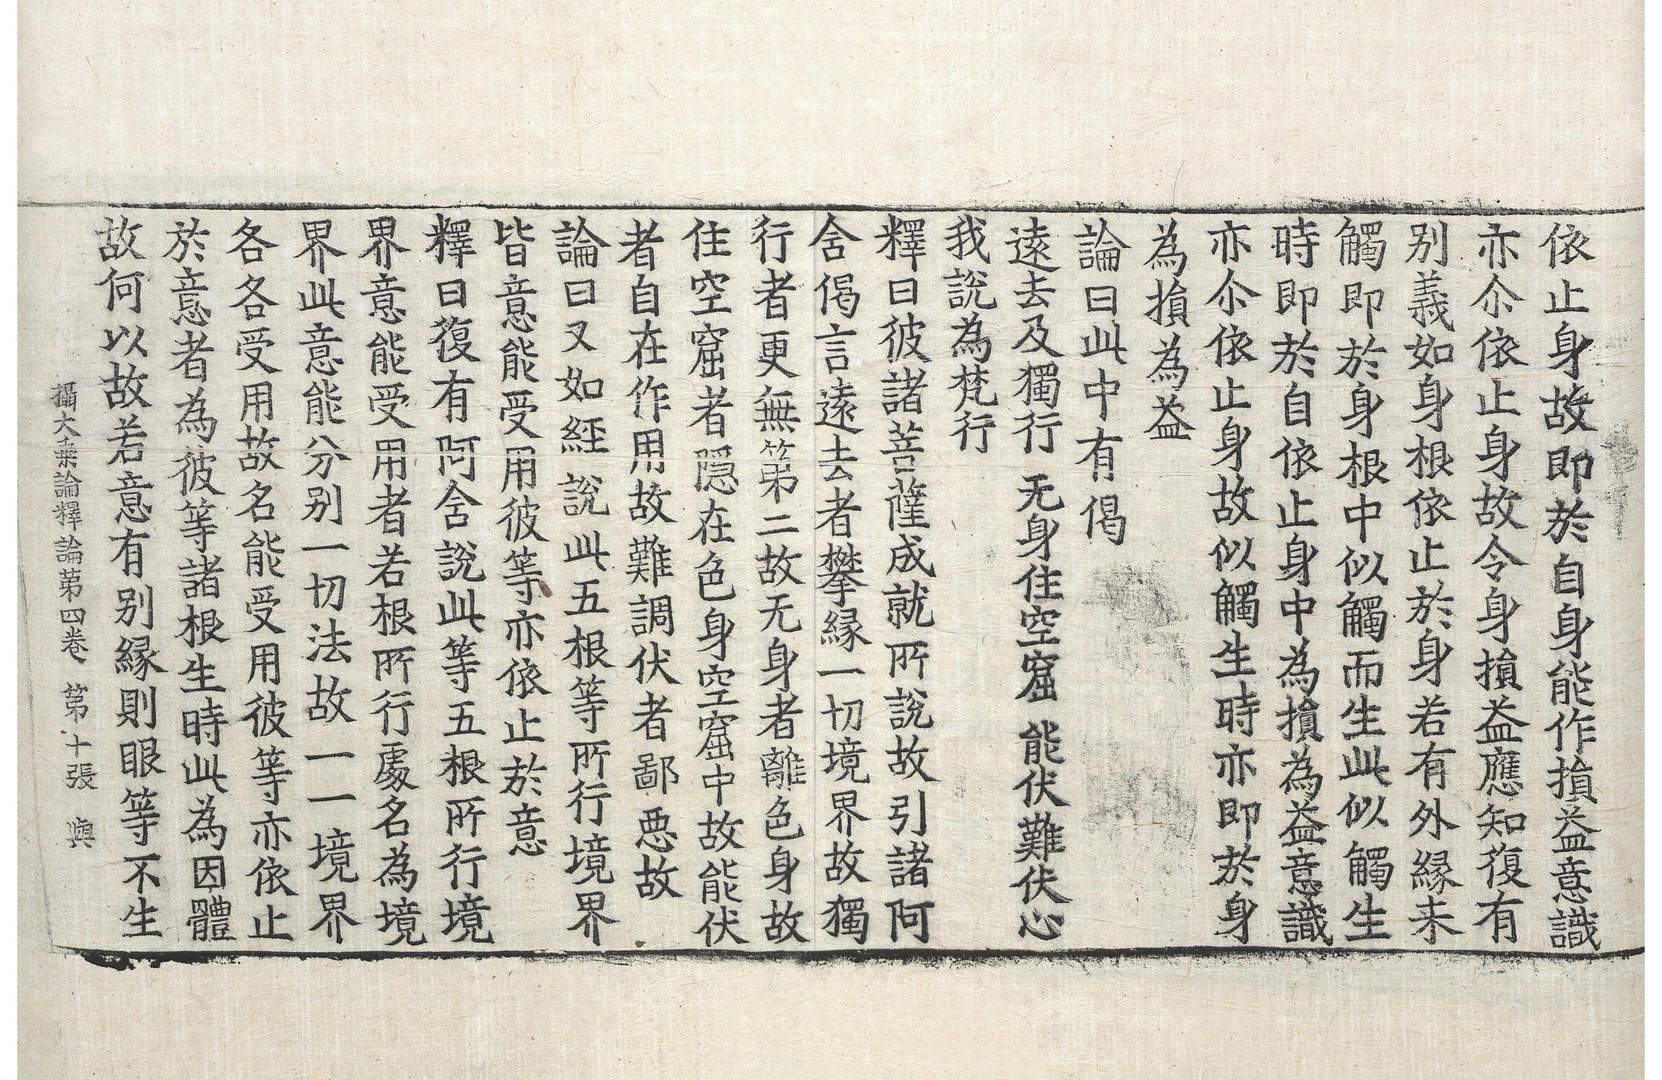 依止身故即於自身能作損益意識
亦尒依止身故令身損益應知復有
別義如身根依止於身若有外緣来
觸即於身根中似觸而生此似觸生
時即於自依止身中為損為益意識
亦尒依止身故似觸生時亦即於身
為損為益
論曰此中有偈
遠去及獨行 无身住空窟 能伏難伏心
我說為梵行
釋曰彼諸菩薩成就所說故引諸阿
舍偈言遠去者攀緣一切境界故獨
行者更無第二故无身者離色身故
住空窟者隱在色身空窟中故能伏
者自在作用故難調伏者鄙恶故
論曰又如經說此五根等所行境界
皆意能受用彼等亦依止於意
釋曰復有阿舍說此等五根所行境
界意能受用者若根所行處名為境
界此意能分別一切法故一一境界
各各受用故名能受用彼等亦依止
於意者為彼等諸根生時此為因體
故何以故若意有別緣則眼等不生
攝大乗論釋論第四卷 第十張 與